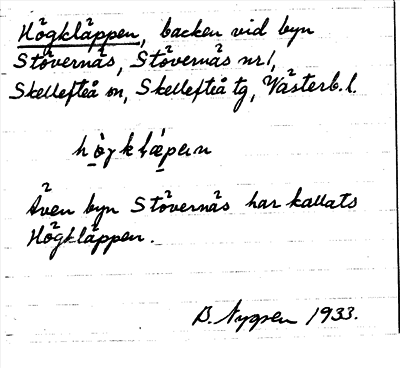 Högkläppen, backen vid byn
Stövernäs, Stövernäs nr 1,
Skellefteå sn, Skellefteå tg, Västerb. l.
Även byn Stövernäs har kallats
Högkläppen.
B. Nygren 1933.